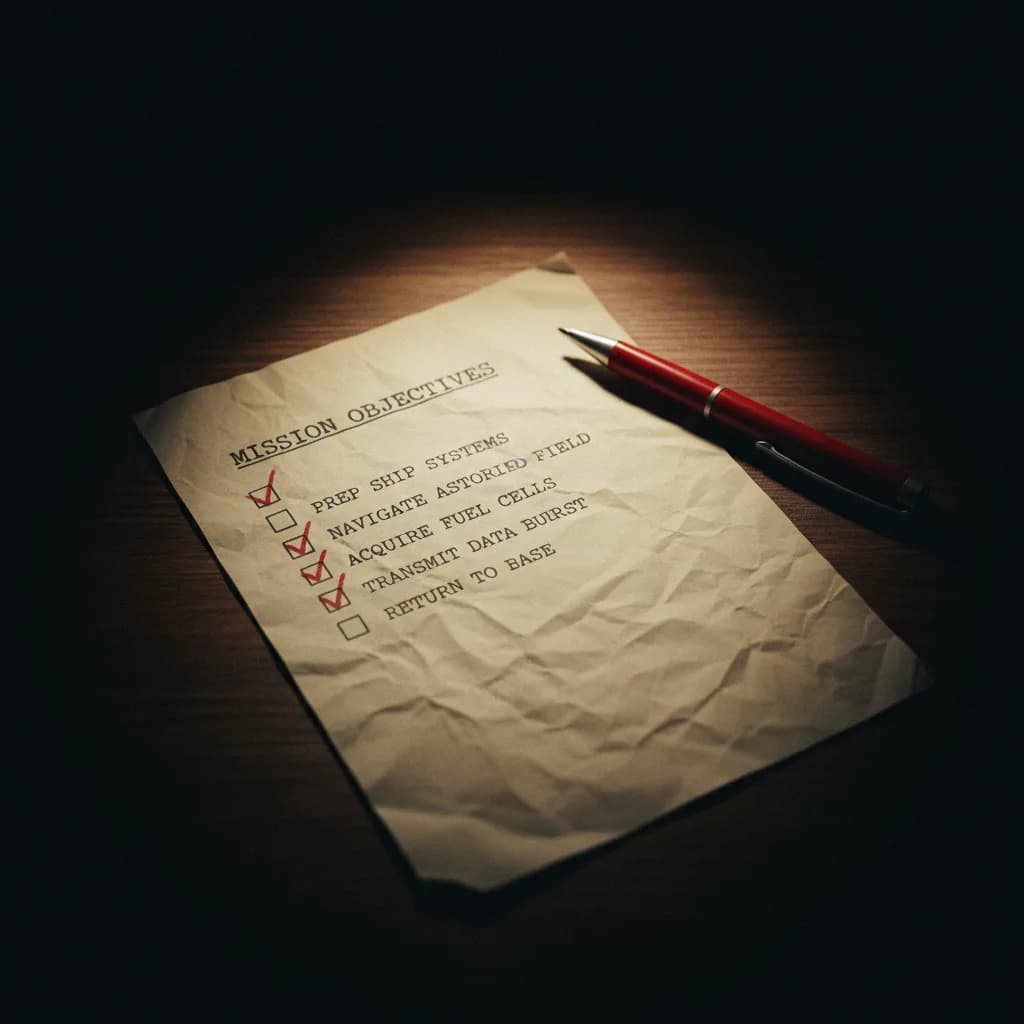 MISSION OBJECTIVES
PREP SHIP SYSTEMS
NAVIGATE ASTORIED FIELD
ACQUIRE FUEL CELLS
TRANSMIT DATA BUIRST
RETURN TO BASE